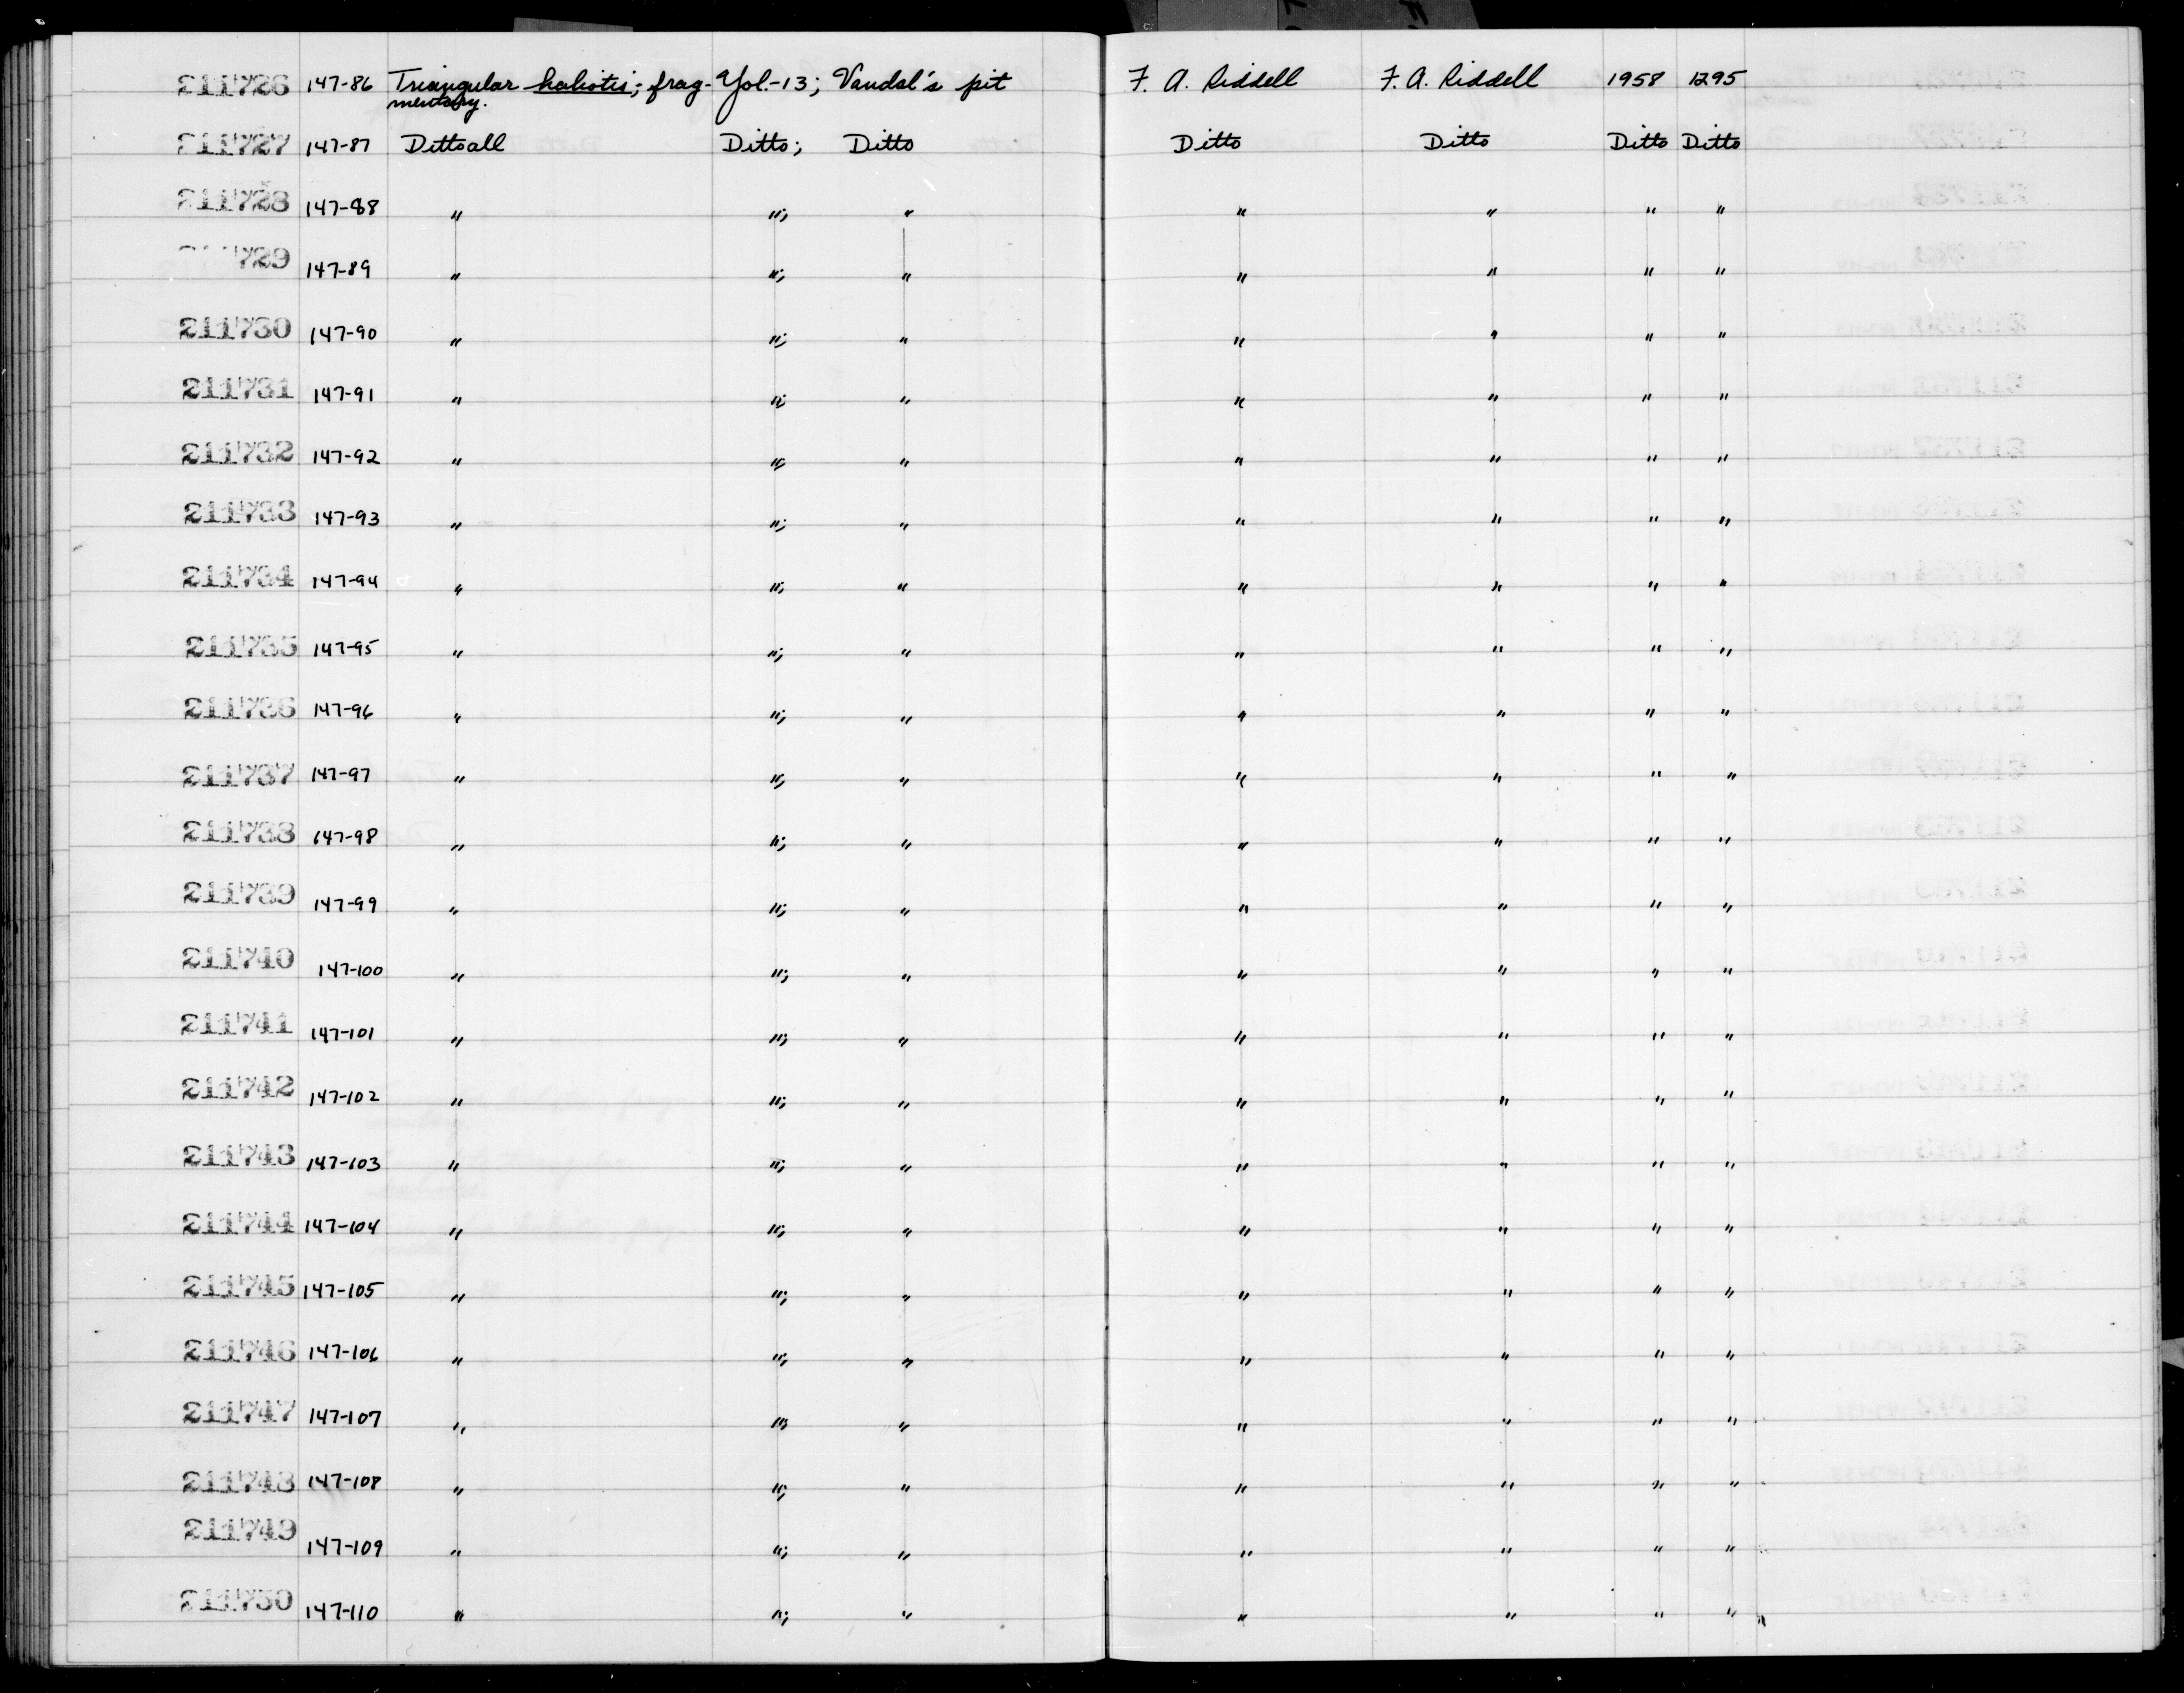 211726 147-86 Triangular haliotis; frag- Yol.-13; Vandal's pit F. A. Riddell F. A. Riddell 1958 1295
mentary.
211727 147-87 Ditto all Ditto; Ditto Ditto Ditto Ditto Ditto
211728 147-88 " "; " " " " "
729 147-89 " "; " " " " "
211730 147-90 " "; " " " " "
211731 147-91 " "; " " " " "
211732 147-92 " "; " " " " "
211733 147-93 " "; " " " " "
211734 147-94 " "; " " " " "
211735 147-95 " "; " " " " "
211736 147-96 " "; " " " " "
211737 147-97 " "; " " " " "
211738 147-98 " "; " " " " "
211739 147-99 " "; " " " " "
211740 147-100 " "; " " " " "
211741 147-101 " "; " " " " "
211742 147-102 " "; " " " " "
211743 147-103 " "; " " " " "
211744 147-104 " "; " " " " "
211745 147-105 " "; " " " " "
211746 147-106 " "; " " " " "
211747 147-107 " "; " " " " "
211748 147-108 " "; " " " " "
211749 147-109 " "; " " " " "
211750 147-110 " "; " " " " "